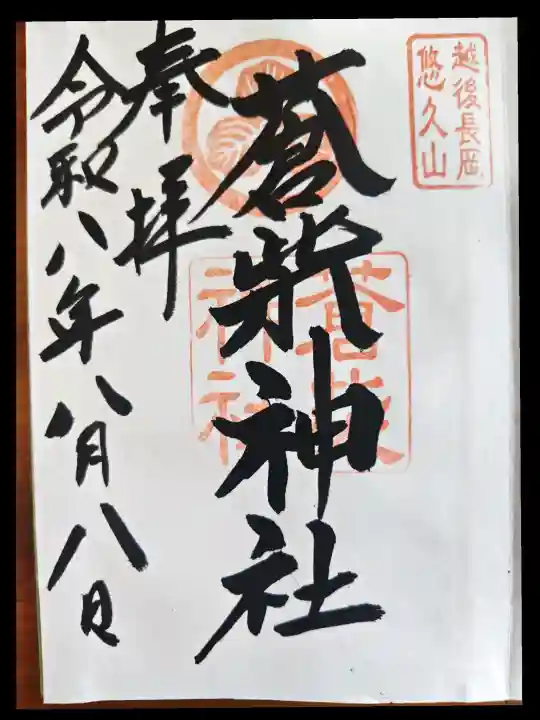 越後長岡
悠久山
蒼柴神社
蒼柴
神社
奉拝
令和八年八月八日